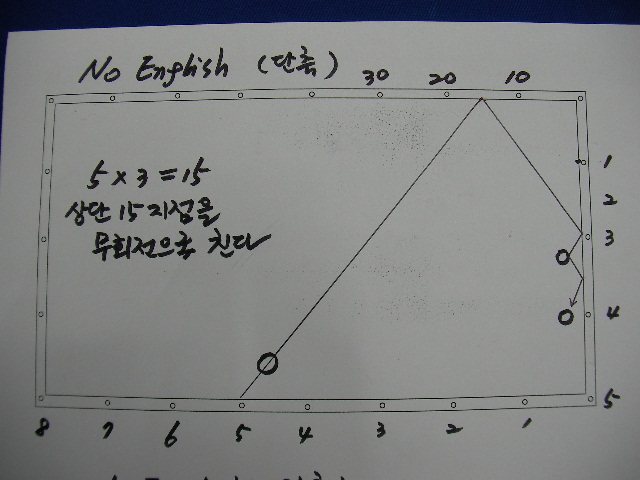 No English (단축)
30 20 10
5 x 3 = 15
상단 15 지점을
무회전으로 친다
1
2
3
4
5
8 7 6 5 4 3 2 1